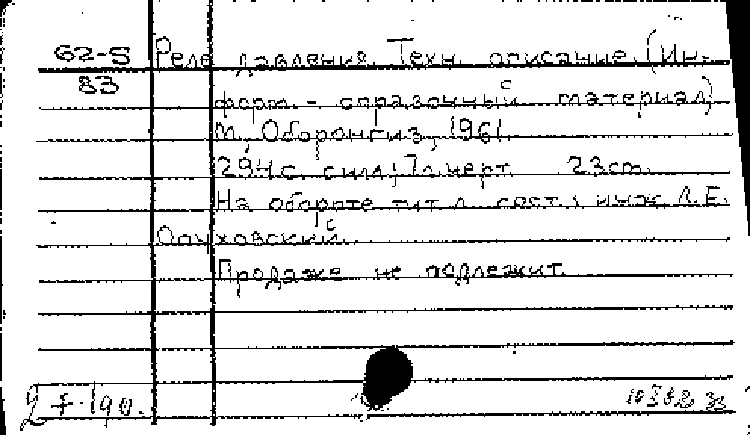 62-5 Реле давления. Техн. описание. (Ин-
83
форм. - справочный материал)
М., Оборонгиз, 1961.
294 с. с илл; 7 л. черт. 23 см.
На обороте тит. л. сост.: инж. Л.Е.
Продаже не подлежит.